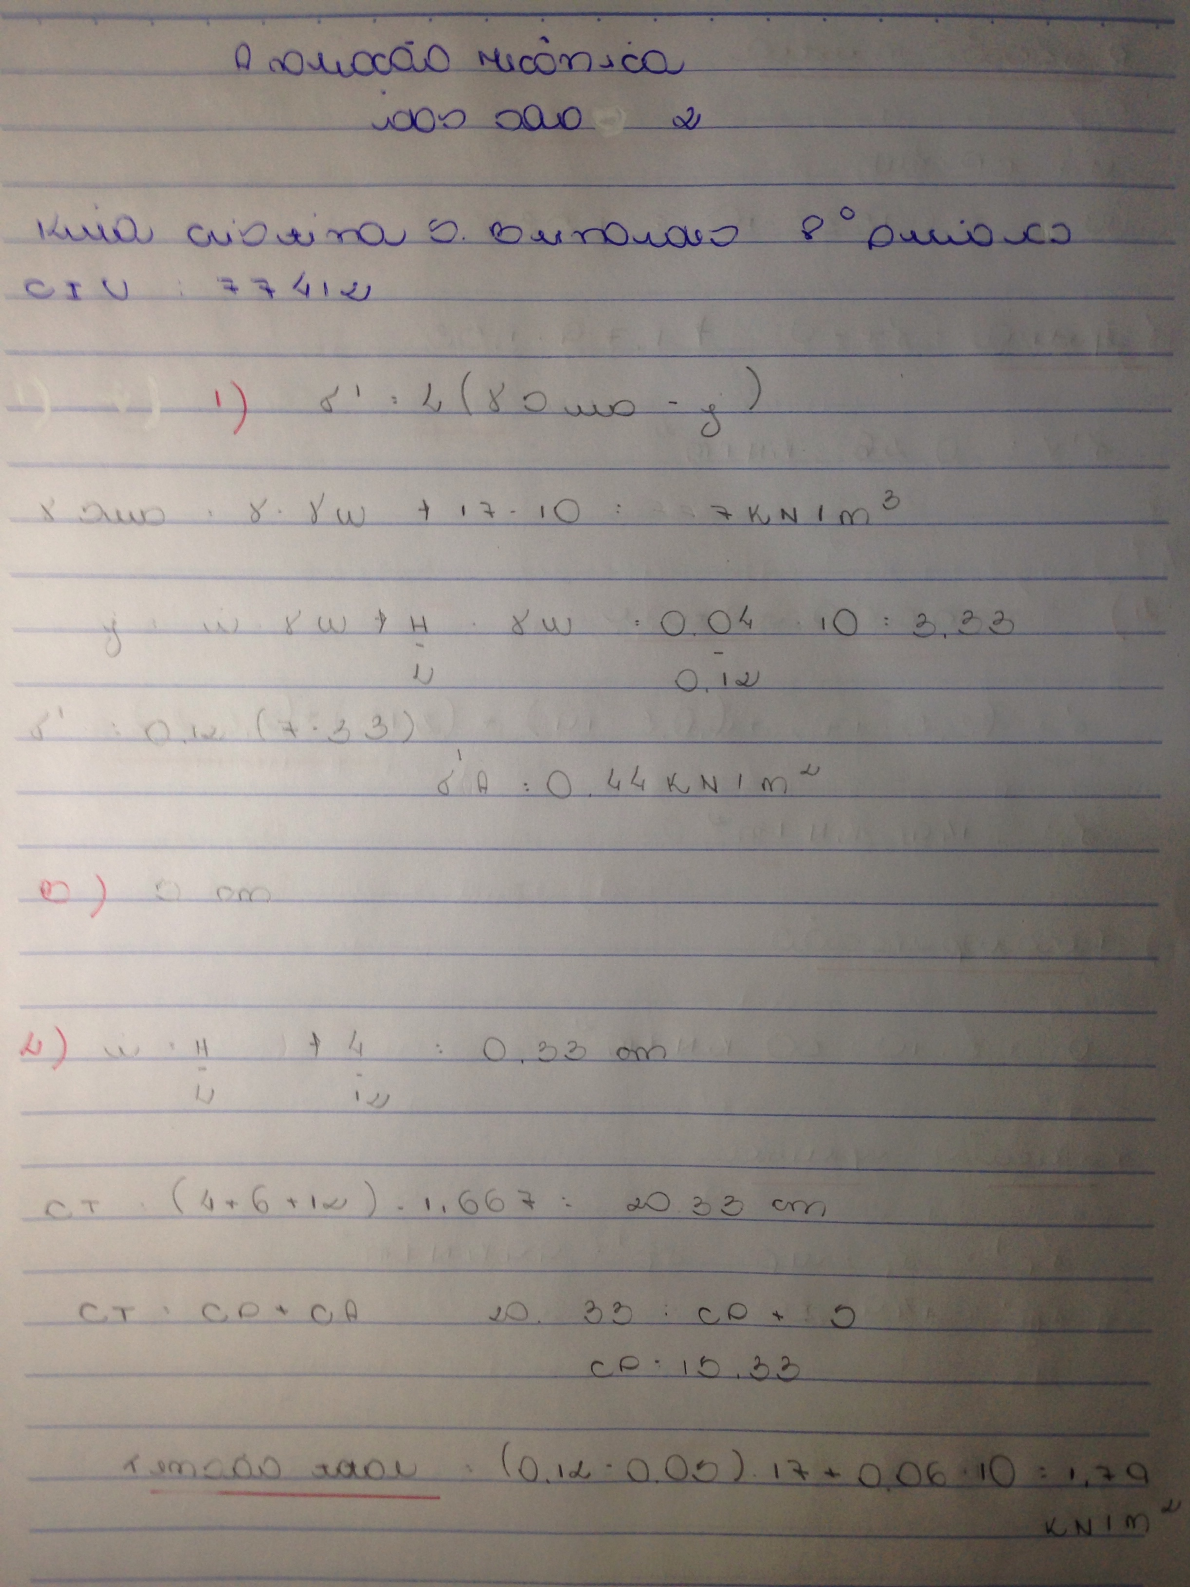 Avaliação mecânica
dos solo 2
8º período
CIV : 77412
1) σ' = L (γsub - j)
γsub = γ - γw → 17 - 10 = 7 KN/m³
j = i . γw → H/L . γw = 0.04/0.12 . 10 = 3.33
σ' = 0.12 (7 - 3.3)
σ'A = 0.44 KN/m²
b) 5 cm
2) i = H/L → 4/12 = 0.33 cm
CT = (4 + 6 + 12) - 1.667 = 20.33 cm
CT = CP + CA 20.33 = CP + 5
CP = 15.33
Tensão total = (0.12 - 0.05) . 17 + 0.06 . 10 = 1,79
KN/m²